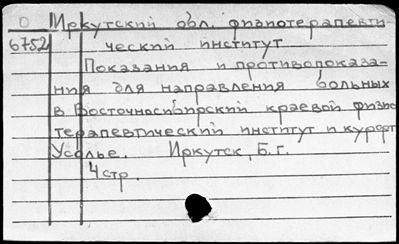 О Иркутский обл. физиотерапевти-
6752 ческий институт
Показания и противопоказа-
ния для направления больных
в Восточносибирский краевой физио
терапевтический институт и курорт
Усолье. Иркутск, Б.г.
4 стр.